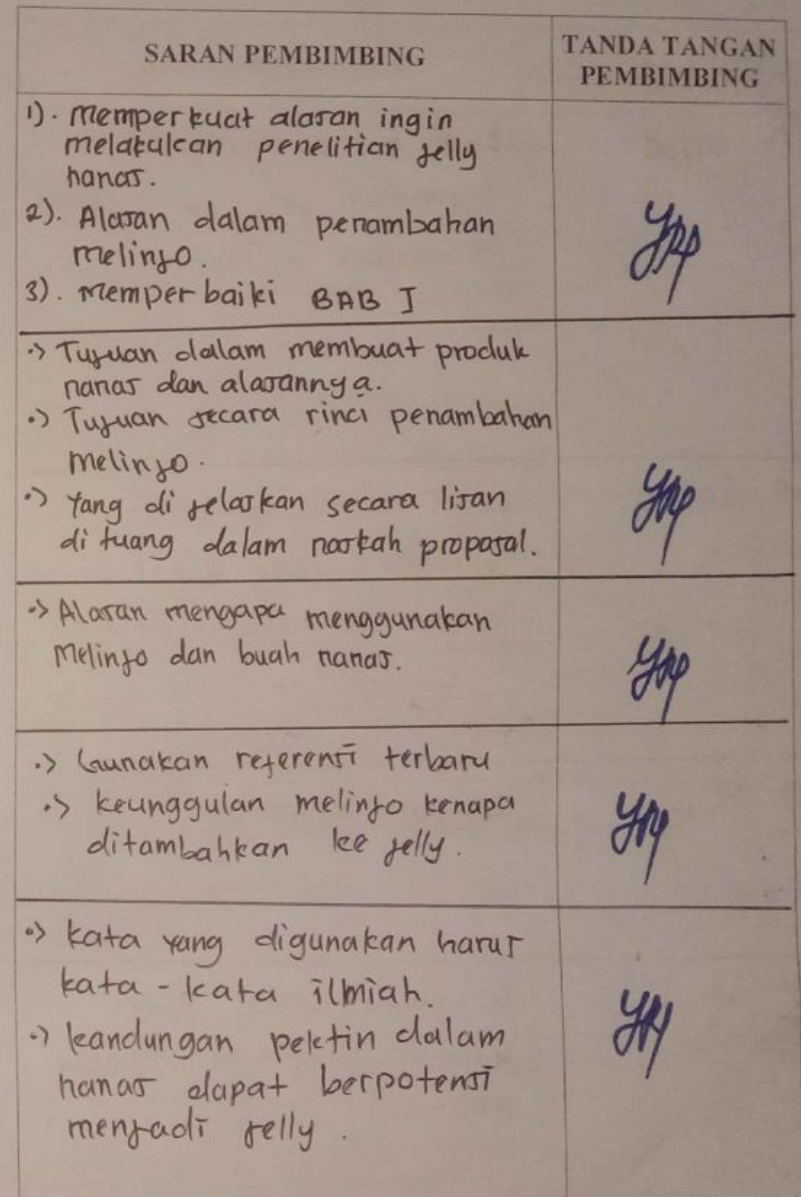 SARAN PEMBIMBING
TANDA TANGAN
PEMBIMBING
1). Memperkuat alasan ingin
melakukan penelitian jelly
nanas.
2). Alasan dalam penambahan
melinjo.
3). Memperbaiki BAB I
•> Tujuan dalam membuat produk
nanas dan alasannya.
•> Tujuan secara rinci penambahan
melinjo.
•> Yang di jelaskan secara lisan
di tuang dalam naskah proposal.
•> Alasan mengapa menggunakan
Melinjo dan buah nanas.
•> Gunakan referensi terbaru
•> keunggulan melinjo kenapa
ditambahkan ke jelly.
•> kata yang digunakan harus
kata - kata ilmiah.
•> kandungan pektin dalam
nanas dapat berpotensi
menjadi jelly.